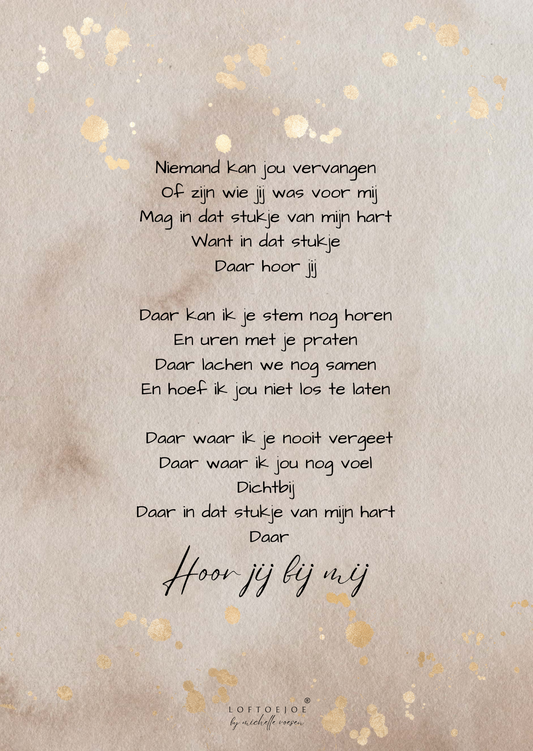 Niemand kan jou vervangen
Of zijn wie jij was voor mij
Mag in dat stukje van mijn hart
Want in dat stukje
Daar hoor jij
Daar kan ik je stem nog horen
En uren met je praten
Daar lachen we nog samen
En hoef ik jou niet los te laten
Daar waar ik je nooit vergeet
Daar waar ik jou nog voel
Dichtbij
Daar in dat stukje van mijn hart
Daar
Hoor jij bij mij
LOFTOEJOE®
by michelle voesen